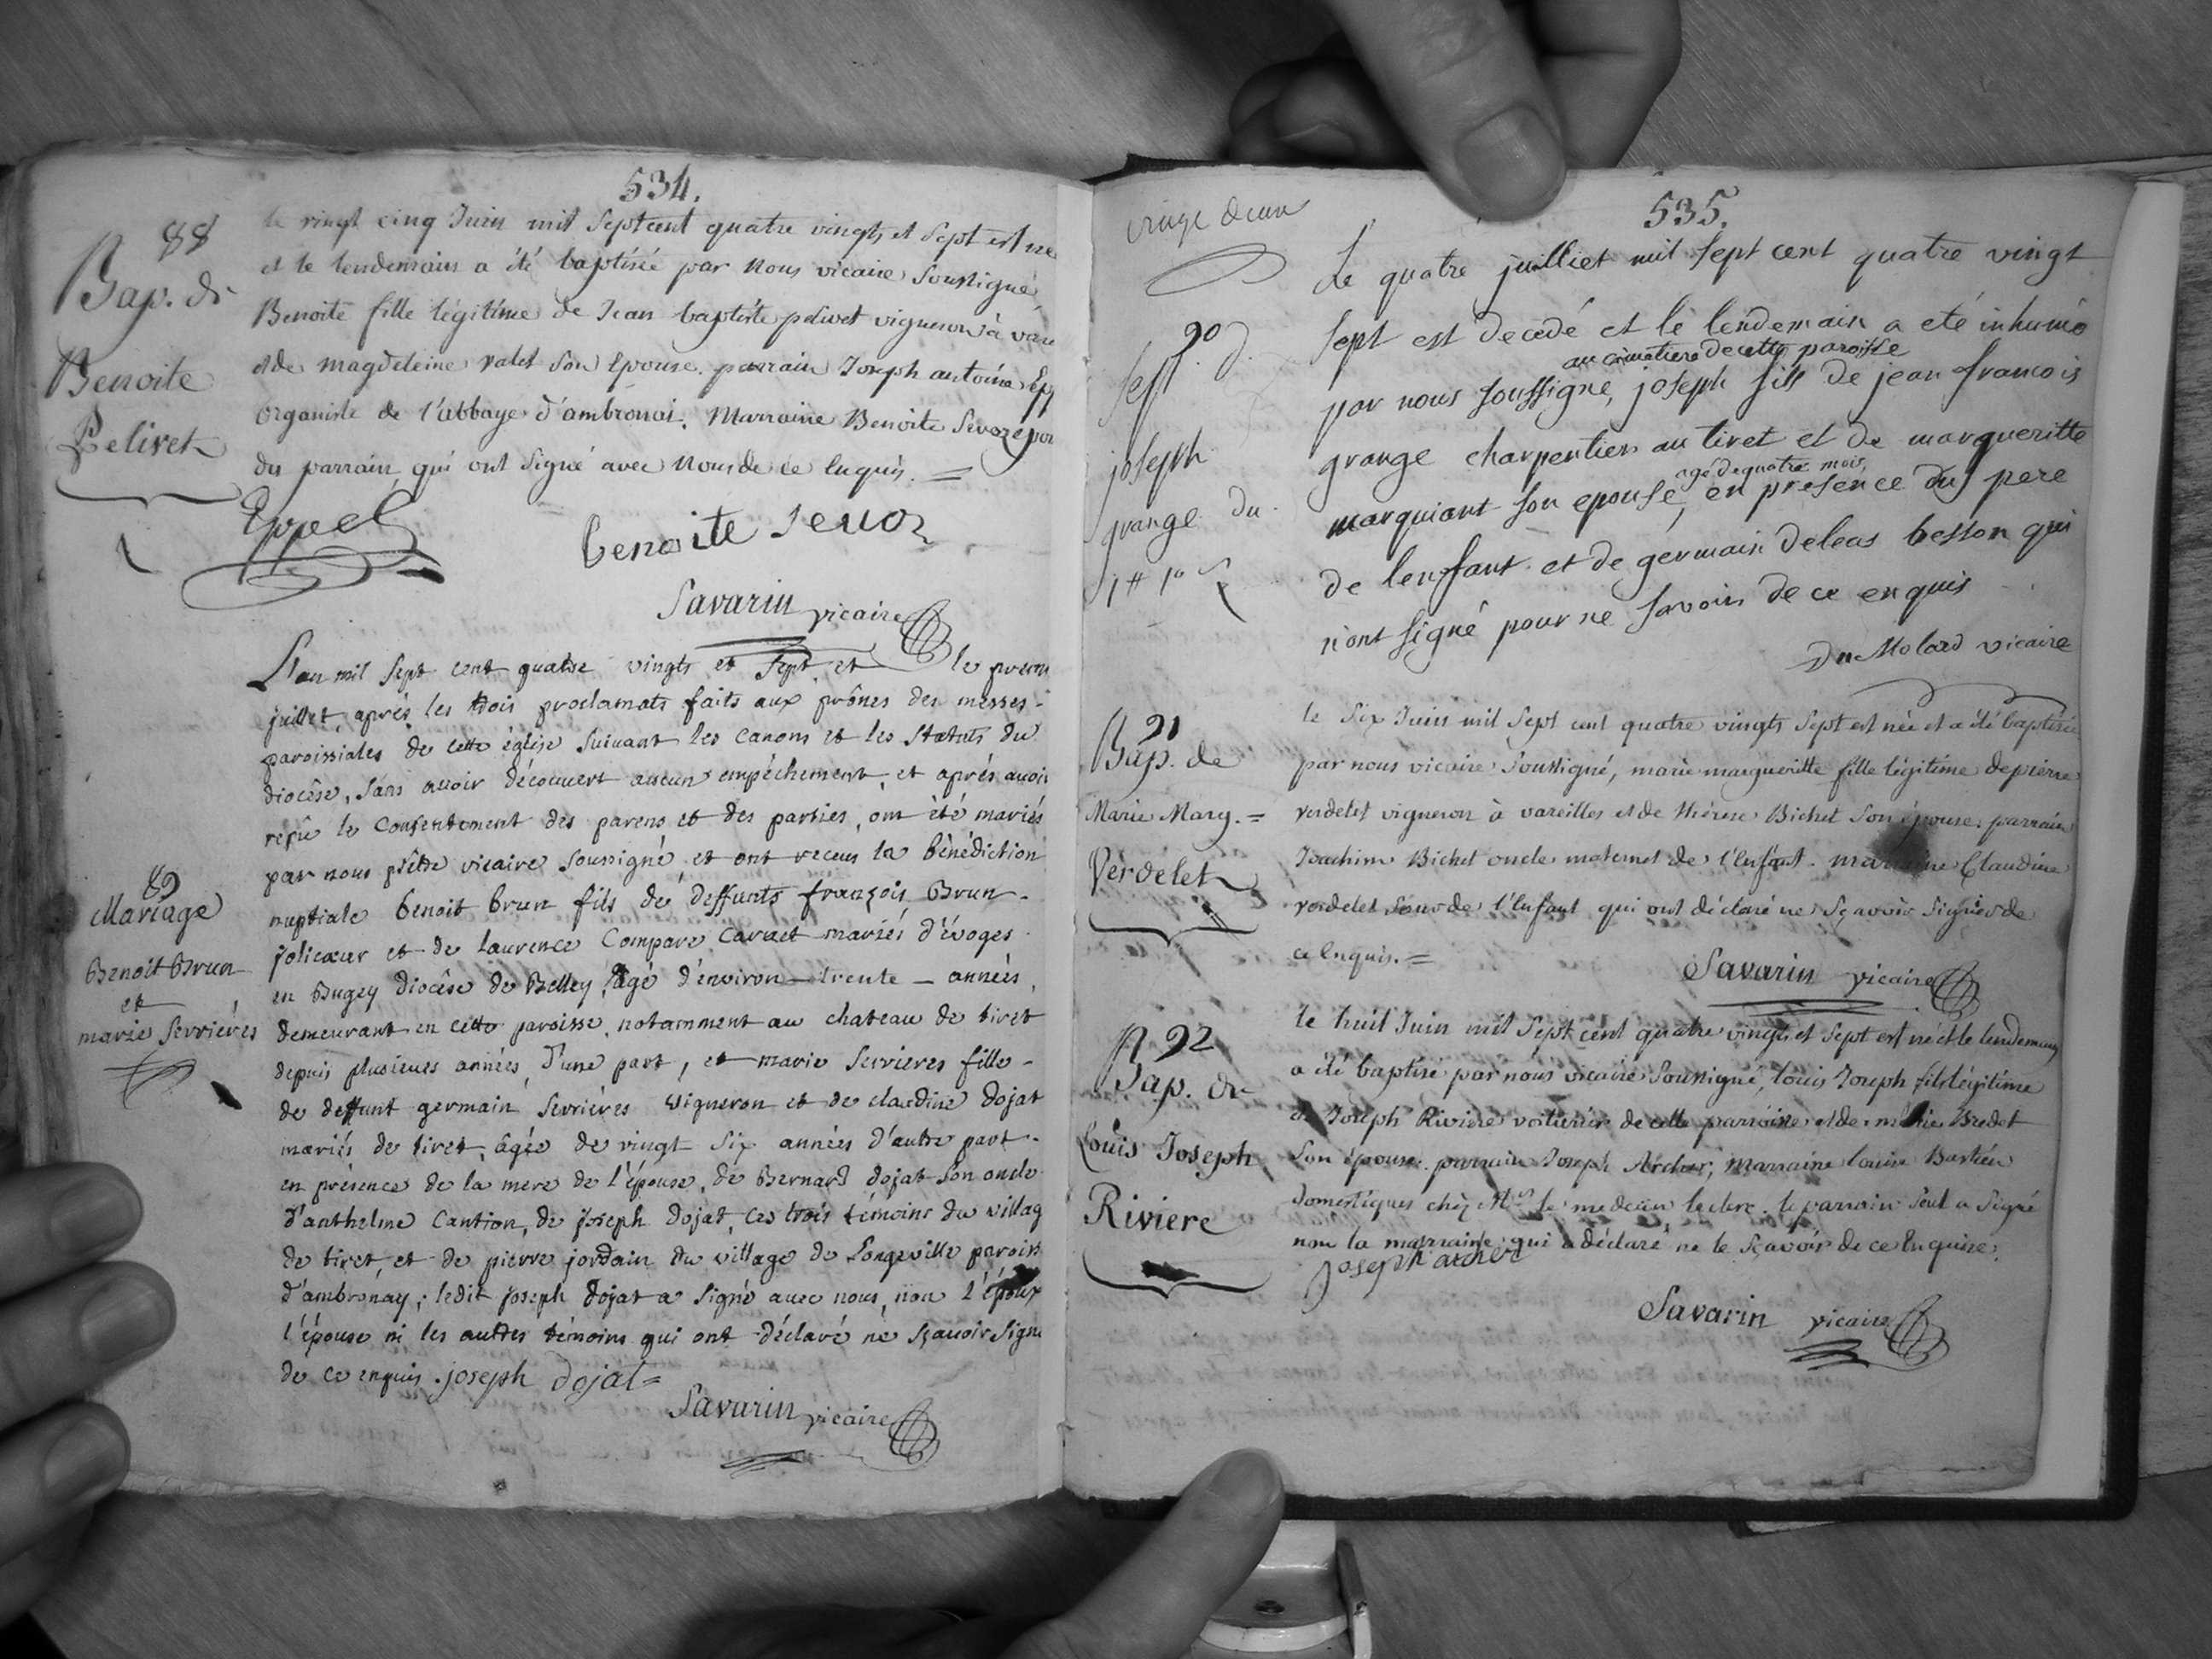 534.
88
Bap. de
Benoite
Pelivet
le vingt cinq Juin mil Septcent quatre vingts et Sept est née
et le lendemain a été baptisée par Nous vicaire Soussigné,
Benoite fille légitime de Jean baptiste pelivet vigneron à vare
et de magdeleine valet son Epouse. parrain Joseph antoine Epp
organiste de l'abbaye d'ambronai. Marraine Benoite Sevoz épou
du parrain, qui ont Signé avec Nous de ce Enquis. =
Eppel
benoite Sevoz
Savarin vicaire
89
Mariage
Benoit Brun
et
marie Serrieres
L'an mil Sept cent quatre vingts et Sept et le premi
juillet, après les trois proclamats faits aux prônes des messes -
paroissiales de cette église suivant les canons et les statuts du
diocêse, sans avoir découvert aucun empêchement, et après avoir
reçu le consentement des parens et des parties, ont été mariés
par nous prêtre vicaire soussigné et ont receus la bénédiction
nuptiale benoit brun fils de deffunts françois Brun -
jolicœur et de laurence Compare Carael mariés d'évoges
en Bugey diocêse de Belley, âgé d'environ - trente - années,
demeurant en cette paroisse, notamment au chateau de tiret
depuis plusieurs années, d'une part, et marie Serrieres fille -
de deffunt germain Serrières vigneron et de claudine Dojat
mariés de tiret, âgée de vingt six années d'autre part -
en présence de la mere de l'épouse, de Bernard dojat son oncle
d'anthelme Cantion, de joseph Dojat, ces trois témoins du villag
de tiret, et de pierre jordain du village de Longeville paroiss
d'ambronay; ledit joseph Dojat a signé avec nous, non l'époux
l'épouse ni les autres témoins qui ont déclaré ne sçavoir sign
de ce enquis. joseph Dojat =
Savarin vicaire
535.
90
Sept. d.
joseph
grange du
Le quatre juilliet mil sept cent quatre vingt
sept est decedé et le lendemain a eté inhumé
au cimetiere de cette paroisse
par nous soussigne, joseph fils de jean francois
grange charpentier au tiret et de margueritte
agé de quatre mois,
marquiant son epouse, en presence du pere
de lenffant et de germain deleas besson qui
n'ont signé pour ne savoir de ce enquis
Du Molard vicaire
91
Bap. de
Marie Marg. =
Verdelet
le Six Juin mil Sept cent quatre vingts Sept est née et a été baptisée
par nous vicaire Soussigné, marie margueritte fille légitime de pierre
verdelet vigneron à vareilles et de thérese Bichet Son épouse. parrain
Joachim Bichet oncle maternel de l'Enfant. marraine Claudine
verdelet Sœur de l'Enfant qui ont déclaré ne Sçavoir Signer de
ce Enquis. =
Savarin vicaire
92
Bap. de
Louis Joseph
Riviere
le huit Juin mil Sept cent quatre vingts et Sept est né et le lendemain
a été baptisé par nous vicaire Soussigné, louis Joseph fils légitime
de Joseph Riviere voiturier de cette parroisse et de marie Bredet
Son épouse. parrain Joseph Archer, Marraine louise Bastien
Domestiques chez Mr. le medecin leclerc. le parrain Seul a Signé
non la marraine qui a déclaré ne le Sçavoir de ce Enquise.
Joseph archer
Savarin vicaire